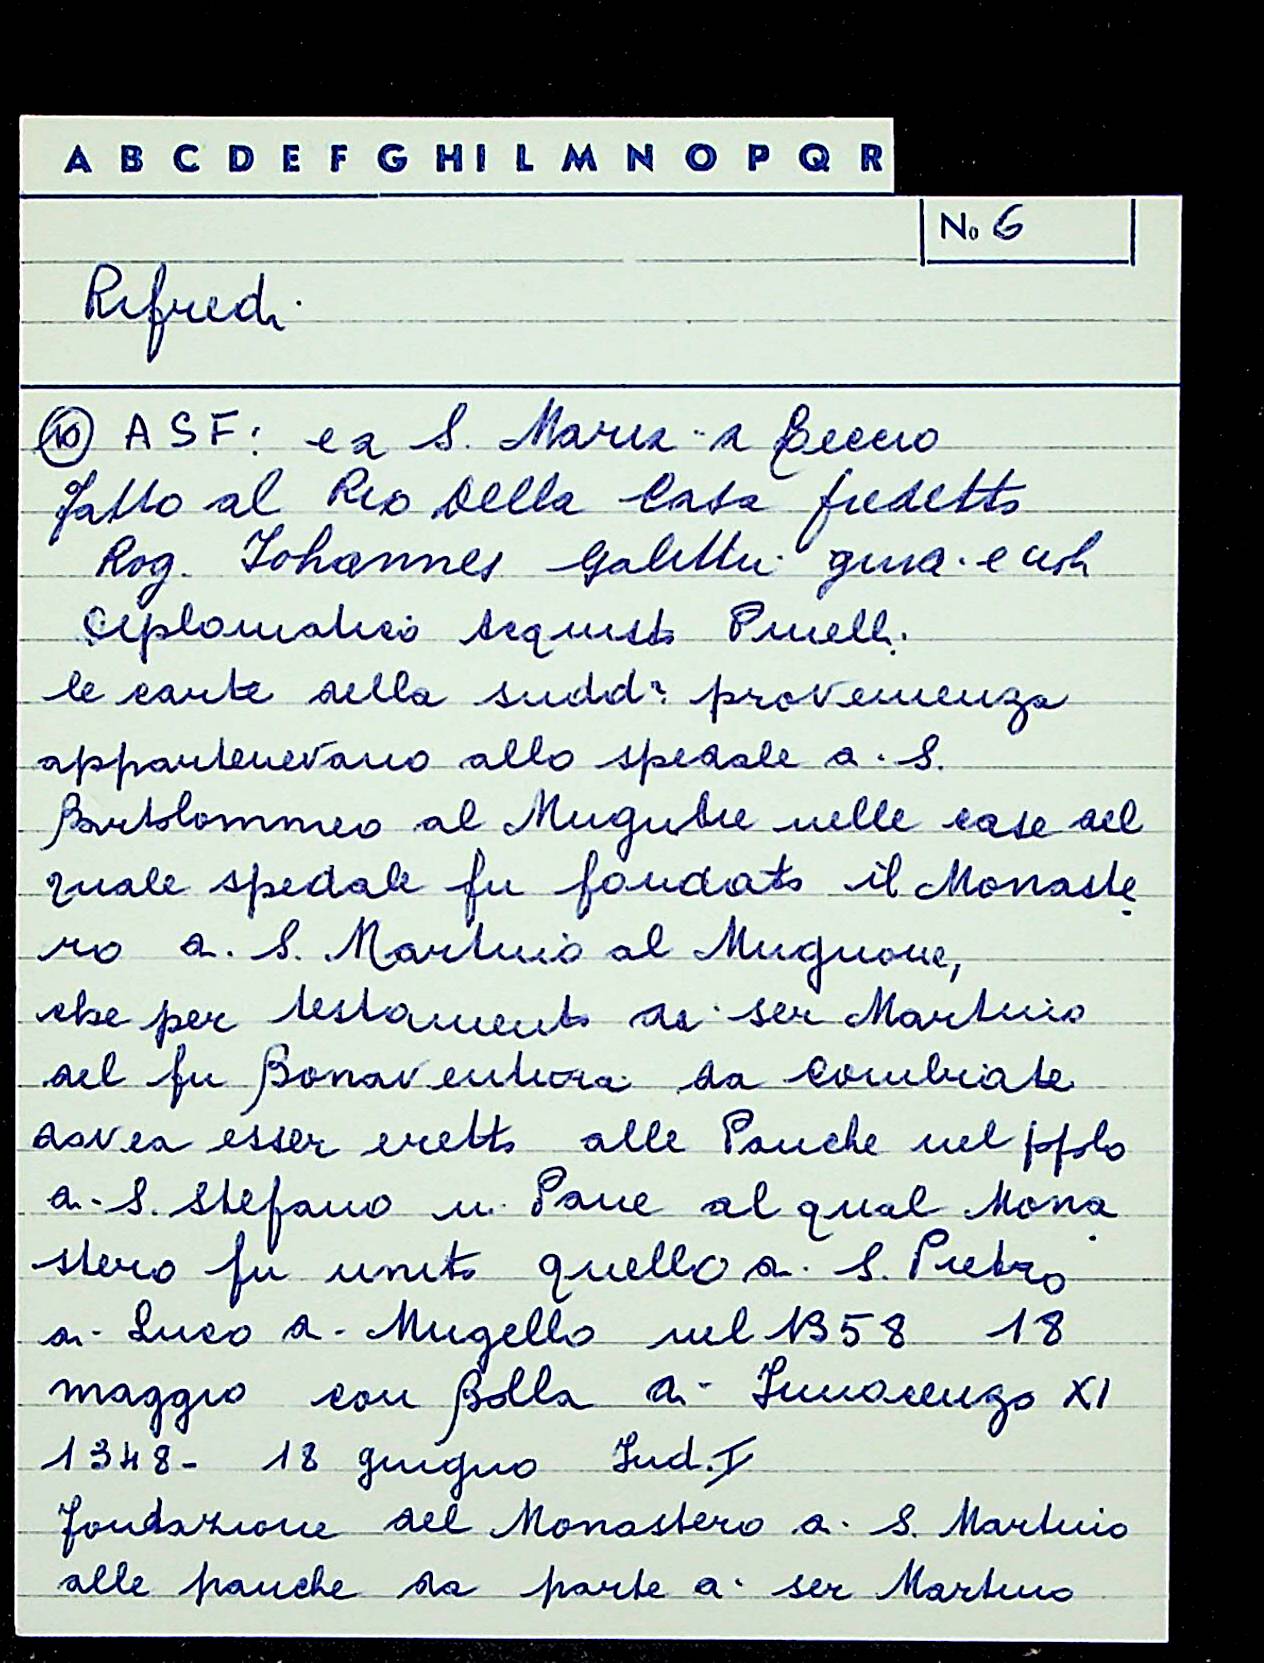 A B C D E F G H I L M N O P Q R
No 6
Rifredi
10 ASF: ea S. Maria a
fatto al Rio della Casa fudetto
Rog. Iohannes Galetti giud. e
diplomatico acquisto Pinelli.
le carte della sudda provenienza
appartenevano allo spedale di S.
Bartolommeo al Mugnone nelle case del
quale spedale fu fondato il Monaste
ro di S. Martino al Mugnone,
che per testamento di ser Martino
del fu Bonaventura da Combiate
dovea esser eretto alle Panche nel pplo
di S. Stefano in Pane al qual Mona
stero fu unito quello di S. Pietro
di Luco di Mugello nel 1358 18
maggio con Bolla di Innocenzo XI
1348- 18 giugno Ind. I
fondazione del Monastero di S. Martino
alle panche da parte di ser Martino